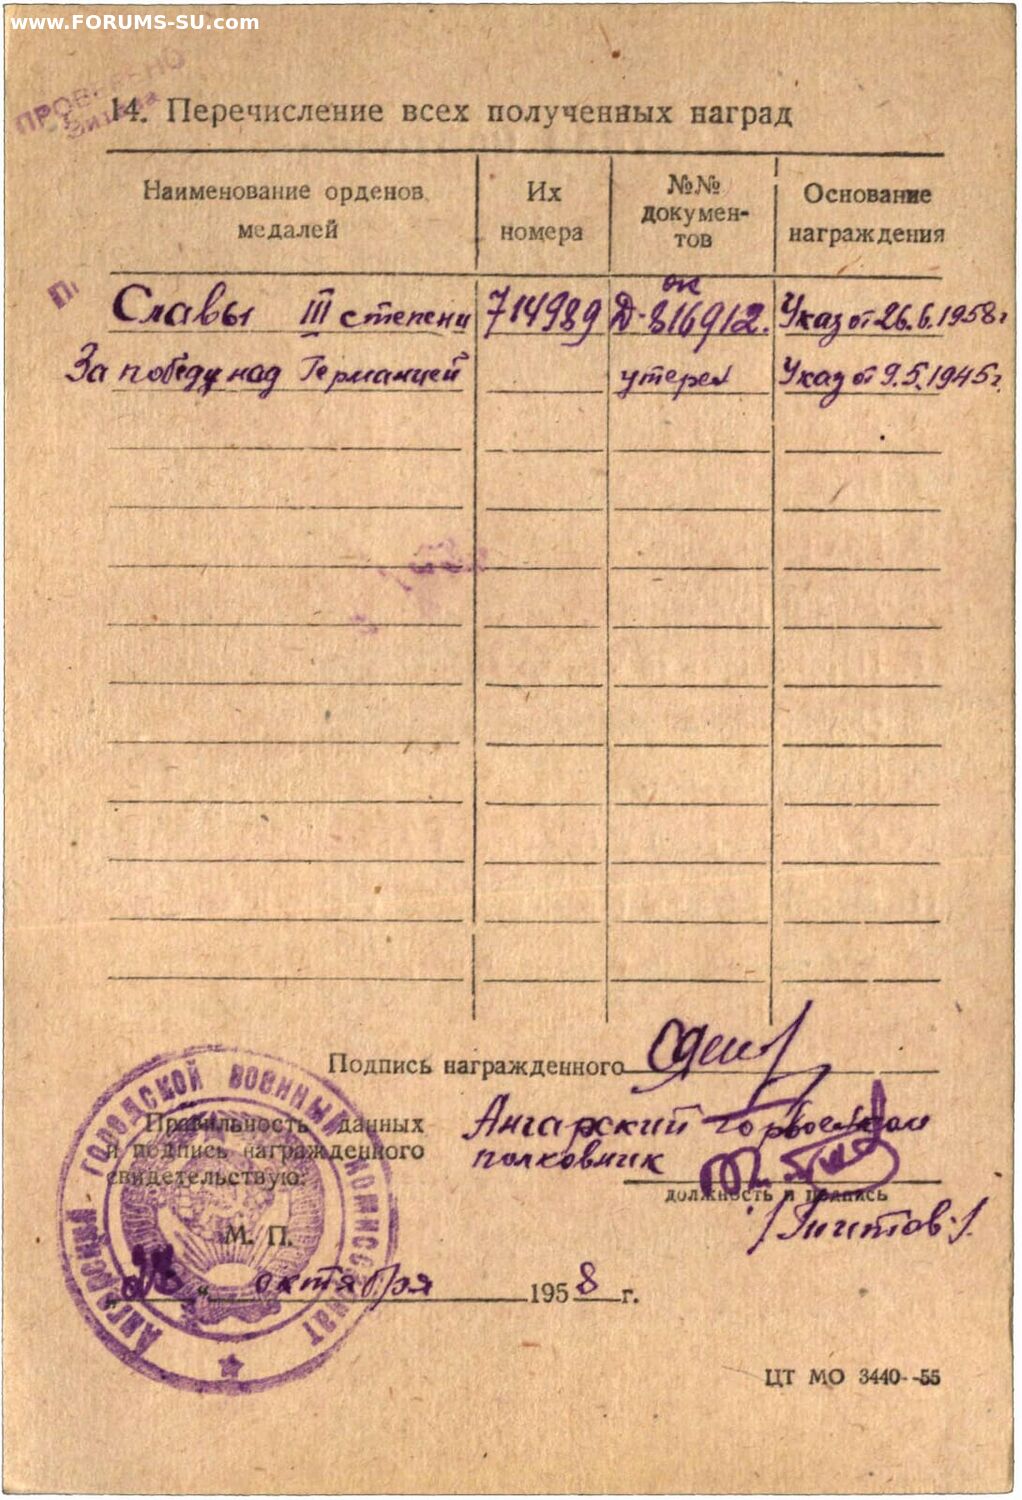 www.FORUMS-SU.com
ПРОВЕРЕНО
14. Перечисление всех полученных наград
Наименование орденов медалей
Их номера
№№ докумен-тов
Основание награждения
Славы III степени 714989 Д-816912. Указ от 26.6.1958г
За победу над Германией утерен Указ от 9.5.1945г.
Подпись награжденного
Правильность данных
и подпись награжденного
свидетельствую:
Ангарский горвоенком
полковник
должность и подпись
М. П.
октября 1958 г.
АНГАРСКИЙ ГОРОДСКОЙ ВОЕННЫЙ КОМИССАРИАТ
ЦТ МО 3440--55